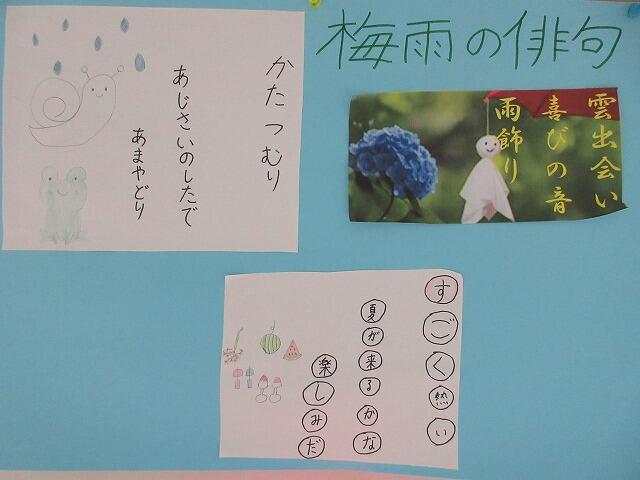 梅雨の俳句
かたつむり
あじさいのしたで
あまやどり
雲出会い
喜びの音
雨飾り
すごく熱い
夏が来るかな
楽しみだ